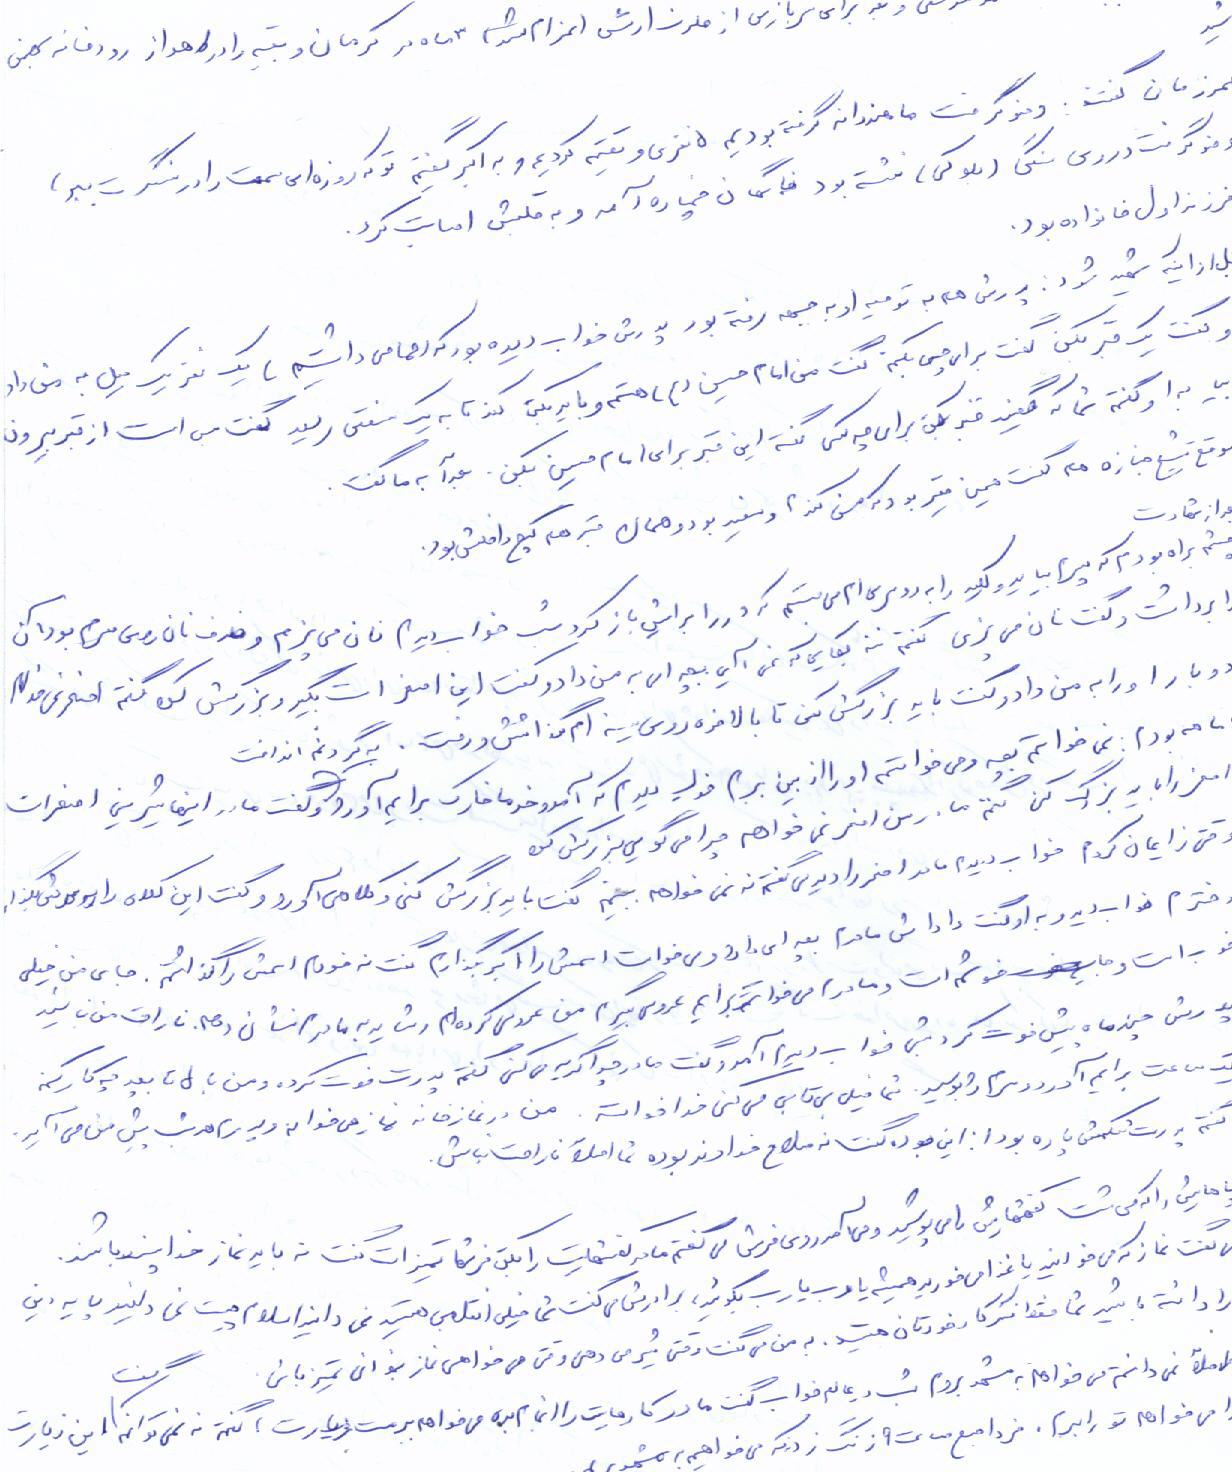 شد
برای سربازی از طرف ارتش اعزام شد ۳ ماه در کرمان و بقیه را در اهواز رودخانه
همرزمان گفتند: وضو گرفت ما هندوانه گرفته بودیم ۵ نفری و تقسیم کردیم و به اکبر گفتیم تو که روزه‌ای سهمت را در سنگرت ببر،
وضو گرفت در روی سنگی (بلوکی) نشسته بود ناگهان خمپاره آمد و به قلبش اصابت کرد.
فرزند اول خانواده بود.
قبل از اینکه شهید شود: پدرش هم به توصیه او به جبهه رفته بود پدرش خواب دیده بود که یک نفر یک بیل به من داد
و گفت یک قبر بکن گفت برای چی بکنم گفت من امام حسین (ع) هستم و باید بکنی کند تا به یک سقفی رسید گفت بس است از قبر بیرون
بیا به او گفتم شما که گفتید قبر بکن برای چه کسی گفت این قبر برای امام حسین بکن. بعداً به ما گفت.
موقع تشییع جنازه هم گفت همین قبر بود که من کندم و سفید بود و همان قبر هم گچ داخلش بود.
بعد از شهادت
چشم براه بودم که بیاید و کلید را به روسری‌ام می‌بستم که در را برایش باز کرد شب خواب دیدم نان می‌پزم و ظرف نان روی سرم بود آن
را برداشت و گفت نان می‌پزی گفتم ننه کجایی که نمی‌آیی بچه‌ای به من داد و گفت این اصغر است بگیر و بزرگش کن گفتم اصغر نمی‌خواهم
دوباره او را به من داد و گفت باید بزرگش کنی تا بالاخره روی سینه‌ام گذاشتش و رفت. به گردنم انداخت
حامله بودم: نمی‌خواستم بچه و می‌خواستم او را از بین ببرم خواب دیدم که آمد و خرما خارک برایم آورد و گفت مادر اینها شیرینی اصغر است
اصغر را باید بزرگ کنی گفتم مادر من اصغر نمی‌خواهم چرا می‌گویی بزرگش کن
وقتی زایمان کردم خواب دیدم مادر اصغر را دیدی گفتم نه نمی‌خواهم ببینم گفت باید بزرگش کنی و کلاهی آورد و گفت این کلاه را روی سرش بگذار
دخترم خواب دید و به او گفت داداش مادرم بچه‌ای دارد و می‌خواست اسمش را اکبر بگذارم گفت نه خودم اسمش را گذاشتم. جای من خیلی
خوب است و خوشم است و مادرم می‌خواست برایم عروسی بگیرم من عروسی کرده‌ام و شاید به مادرم نشان دهم. ناراحت من نباشید
پدرش چند ماه پیش فوت کرد شبی خواب دیدم آمد و گفت مادر چرا گریه می‌کنی گفتم پدرت فوت کرده و من با ۵ تا بچه چکار کنم
یک ساعت برایم آورد و سرم را بوسید. شما خیلی بی‌تابی می‌کنی خدا خواسته. من در نمازخانه نماز می‌خوانم و پدرم هر شب پیش من می‌آید.
گفتم پدرت شکمش پاره بود این بوده گفت نه صلاح خداوند بوده شما اصلاً ناراحت نباش.
پاهایش را که می‌شست کفشهایش را می‌پوشید و می‌آمد روی فرش می‌گفتم مادر کفشهایت را بکن فرش تمیز است گفت نه باید نماز خدا پسند باشد.
می‌گفت نماز که می‌خوانید یا غذا می‌خورید همیشه یارب یارب بگوئید، برادرش می‌گفت شما خیلی انقلابی هستید نمی‌دانید اسلام چیست نمی‌دانید پایه دین
را دانسته باشید شما فقط فکر کار خودتان هستید. به من می‌گفت وقتی شیر می‌دهی وقتی می‌خواهی نماز بخوانی تمیز باش.
اصلاً نمی‌دانستم می‌خواهم به مشهد بروم شب در عالم خواب گفت مادر کارهایت را انجام بده می‌خواهم ببرمت زیارت، گفتم نه نمی‌توانم گفت این زیارت
را می‌خواهم تو را ببرم. فردا صبح ساعت ۹ زنگ زدند که می‌خواهیم به مشهد برویم